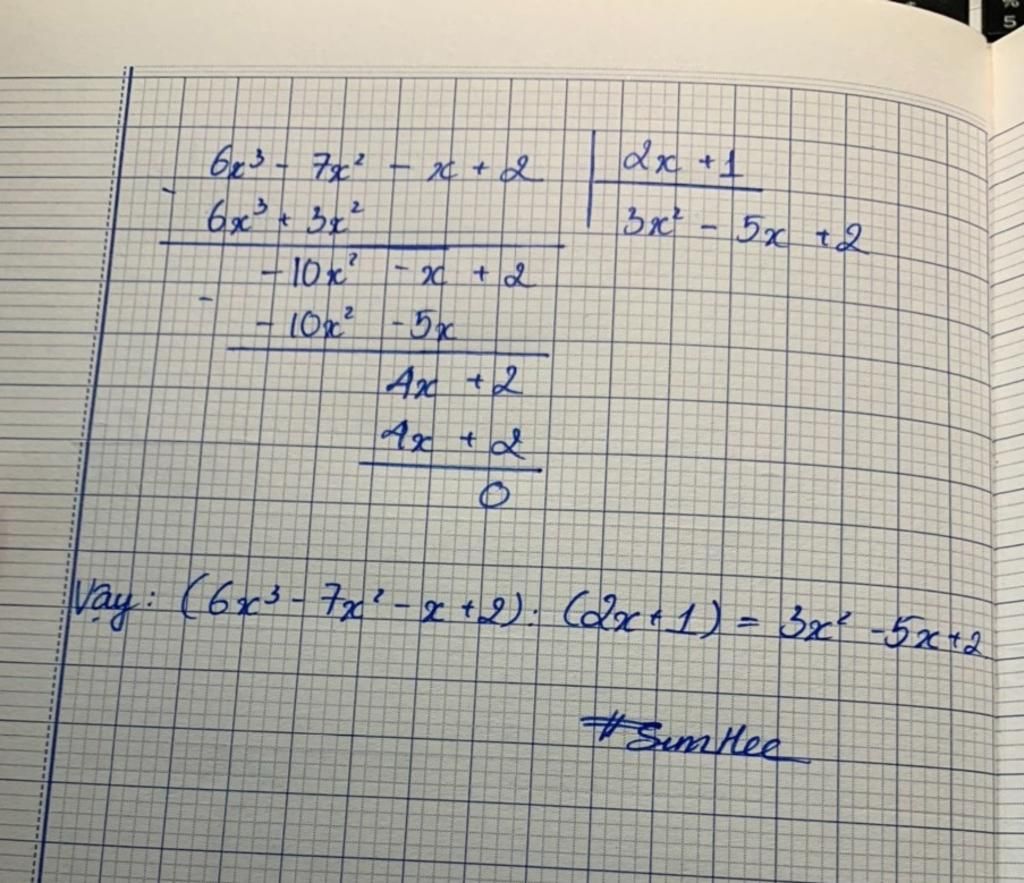 6x³ - 7x² - x + 2 | 2x + 1
- 6x³ + 3x² | 3x² - 5x + 2
-10x² - x + 2
- -10x² - 5x
4x + 2
4x + 2
0
Vậy: (6x³ - 7x² - x + 2) : (2x + 1) = 3x² - 5x + 2
#SumHee